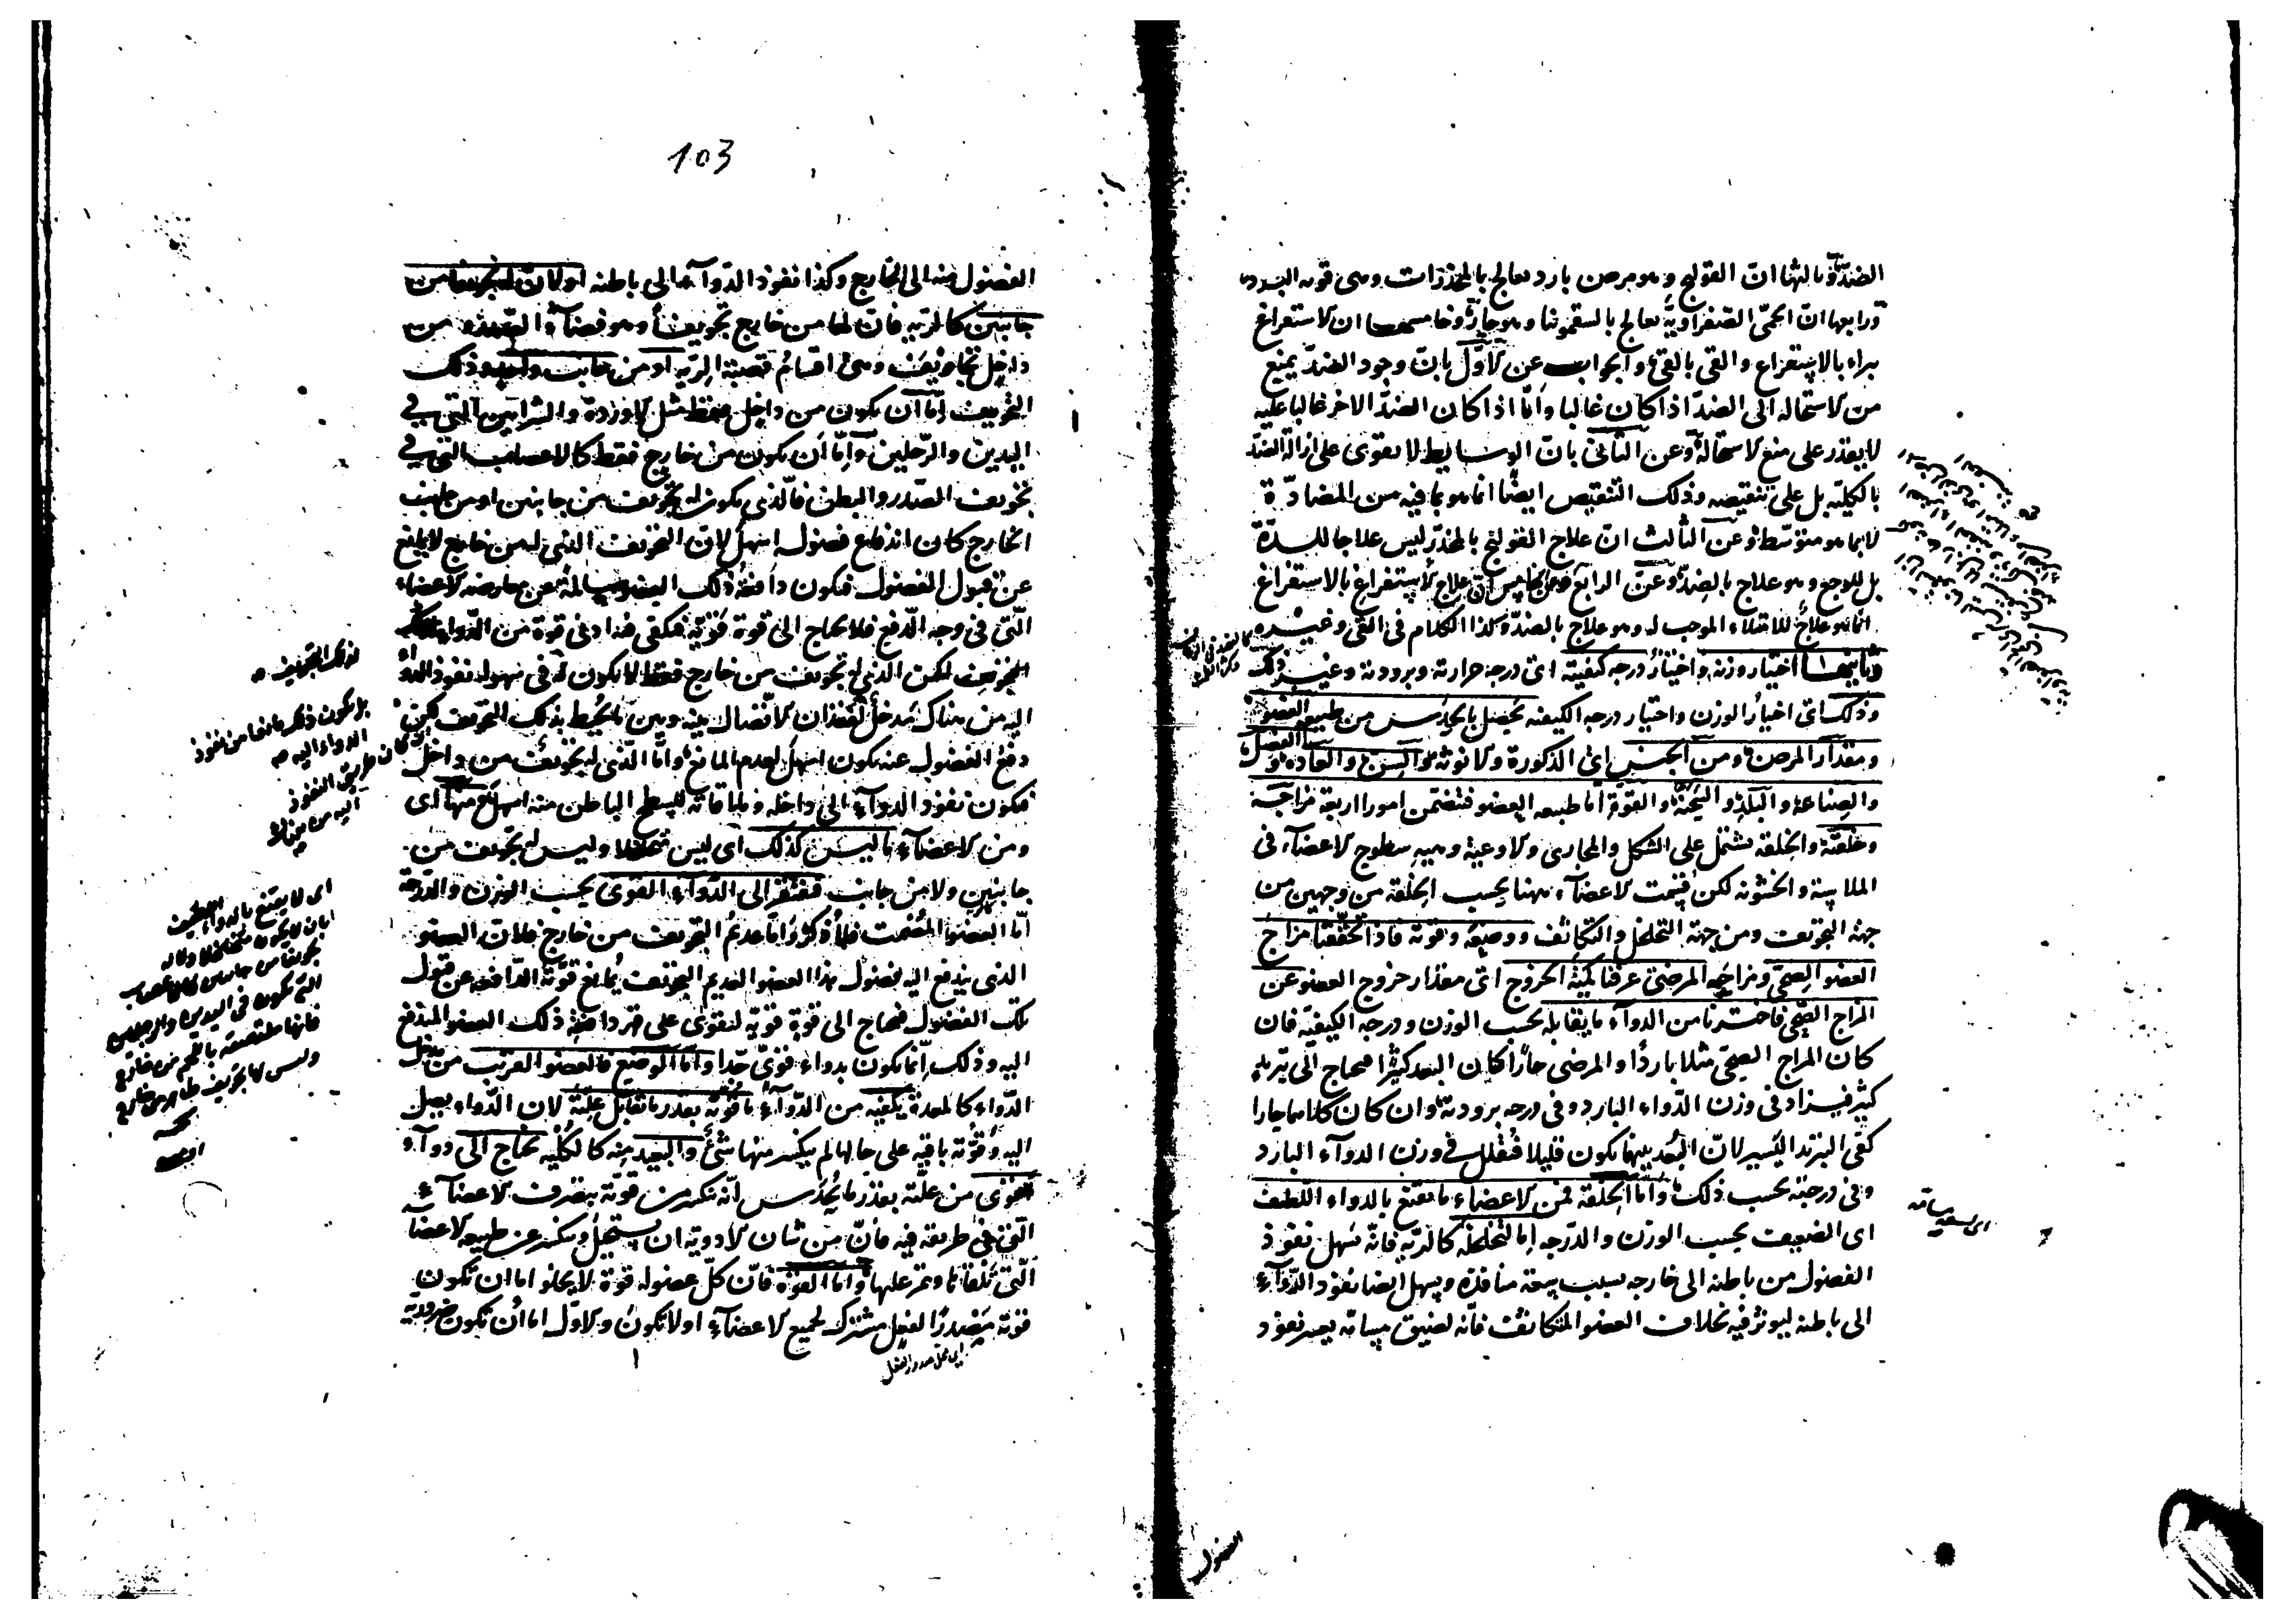 الضد وثالثها ان القولنج وهو مرض بارد يعالج بالمخدرات وهى قوية البرودة
ورابعها ان الحمى الصفراوية تعالج بالسقمونيا وهو حار وخامسها ان الاستفراغ
يبراء بالاستفراغ والقى بالقى والجواب عن الاول بان وجود الضد يمنع
من الاستحالة الى الضد اذا كان غالبا واما اذا كان الضد الاخر غالبا عليه
لا يقدر على منع الاستحالة وعن الثانى بان الوسايط لا يقوى على ازالة الضد
بالكلية بل على تنقيصه وذلك التنقيص ايضا انما هو بما فيه من المضادة
لا بما هو متوسط وعن الثالث ان علاج القولنج بالمخدر ليس علاجا للسدة
بل للوجع وهو علاج بالضد وعن الرابع وعن الخامس ان علاج الاستفراغ بالاستفراغ
انما هو علاج للامتلاء الموجب له وهو علاج بالضد وكذا الكلام فى القى وغيره
وثانيها اختيار وزنه واختيار درجه كيفيته اى درجه حرارته وبرودته وغير ذلك
وذلك اى اختيار الوزن واختيار درجه الكيفية يحصل بالحدس من طبيعة العضو
ومقدار المرض ومن الجنس اى الذكورة والانوثة والسن والعادة والفصل
والصناعة والبلد والسحنة والقوة اما طبيعة العضو فتتضمن امورا اربعة مزاجه
وخلقته والخلقة تشتمل على الشكل والمجارى والاوعية وهيئة سطوح الاعضاء فى
الملاسة والخشونة لكن قسمت الاعضاء ههنا بحسب الخلقة من وجهين من
جهة التجويف ومن جهة التخلخل والتكاثف ووضعه وقوته فاذا تحققنا مزاج
العضو الصحى ومزاجه المرضى عرفنا كمية الخروج اى مقدار خروج العضو عن
المزاج الصحى فاخترنا من الدواء ما يقابله بحسب الوزن ودرجه الكيفية فان
كان المزاج الصحى مثلا باردا والمرضى حارا كان البعد كثيرا فيحتاج الى تبريد
كثير فيزاد فى وزن الدواء البارد وفى درجه برودته وان كان كلاهما حارا
كفى التبريد اليسير لان البعد بينهما يكون قليلا فيقلل فى وزن الدواء البارد
وفى درجته بحسب ذلك واما الخلقة فمن الاعضاء ما يقنع بالدواء اللطيف
اى الضعيف بحسب الوزن والدرجه اما لتخلخله كالرية فانه يسهل نفوذ
الفضول من باطنه الى خارجه بسبب سعة منافذه ويسهل ايضا نفوذ الدواء
الى باطنه ليوثر فيه بخلاف العضو المتكاثف فانه لضيق مسامه يعسر نفوذ
الفضول
103
الفضول منه الى الخارج وكذا نفوذ الدواء الى باطنه او لان له تجويفا من
جانبين كالرية فان لها من خارج تجويفا وهو فضاء الصدر ومن
داخل تجاويف وهى اقسام قصبة الرية او من جانب واحد وذلك
التجويف اما ان يكون من داخل فقط مثل الاوردة والشرايين التى فى
اليدين والرجلين واما ان يكون من خارج فقط كالاعصاب التى فى
تجويف الصدر والبطن فالذى يكون له تجويف من جانبين او من جانب
الخارج كان اندفاع فضوله اسهل لان التجويف الذى له من خارج لا يمانع
عن قبول الفضول فيكون دافعة ذلك العضو سالمة عن معارضة الاعضاء
التى فى وجه الدفع فلا يحتاج الى قوة قوية فيكفى فيه ادنى قوة من الدواء
التجويف لكن الذى له تجويف من خارج فقط لا يكون له فى سهولة نفوذ الدواء
اليه من هناك مدخل لفقدان الاتصال بينه وبين ما يحيط بذلك التجويف لكن
دفع الفضول عنه يكون اسهل لعدم المانع واما الذى له تجويف من داخل
فيكون نفوذ الدواء الى داخله وملاقاته للسطح الباطن منه اسهل ومنها اى
ومن الاعضاء ما ليس كذلك اى ليس متخلخلا وليس له تجويف من
جانبين ولا من جانب فيفتقر الى الدواء القوى بحسب الوزن والدرجة
اما العضو المصمت فلما ذكر واما عديم التجويف من خارج فلان العضو
الذى يندفع اليه فضول هذا العضو العديم التجويف يمانع قوته الدافعة عن قبول
تلك الفضول فيحتاج الى قوة قوية لتقوى على قهر دافعة ذلك العضو المندفع
اليه وذلك انما يكون بدواء قوى جدا واما الوضع فالعضو القريب من مدخل
الدواء كالمعدة يكفيه من الدواء ما قوته بقدر ما تقابل علته لان الدواء يصل
اليه وقوته باقية على حالها لم ينكسر منها شئ والبعيد منه كالكلية يحتاج الى دواء
اقوى من علته بقدر ما يحدس انه ينكسر من قوته بتصرف الاعضاء
التى فى طريقه فيه فان من شان الادوية ان يستحيل وينكسر عن طبيعة الاعضاء
التى تلقاها وتمر عليها واما القوة فان كل عضو له قوة لا يخلو اما ان تكون
قوته مصدرا لفعل مشترك لجميع الاعضاء او لا تكون والاول اما ان تكون ضرورية
اى محل صدور الفعل
لذلك التجويف
بل يكون ذلك مانعا من نفوذ
الدواء اليه
اى لا يقنع بالدواء اللطيف
بان لا يكون متخلخلا ولا له
تجويفا من جانبين كالاعصاب
التى تكون فى اليدين والرجلين
فانها ملتصقة باللحم من خارج
وليس لها تجويف ظاهر من خارج